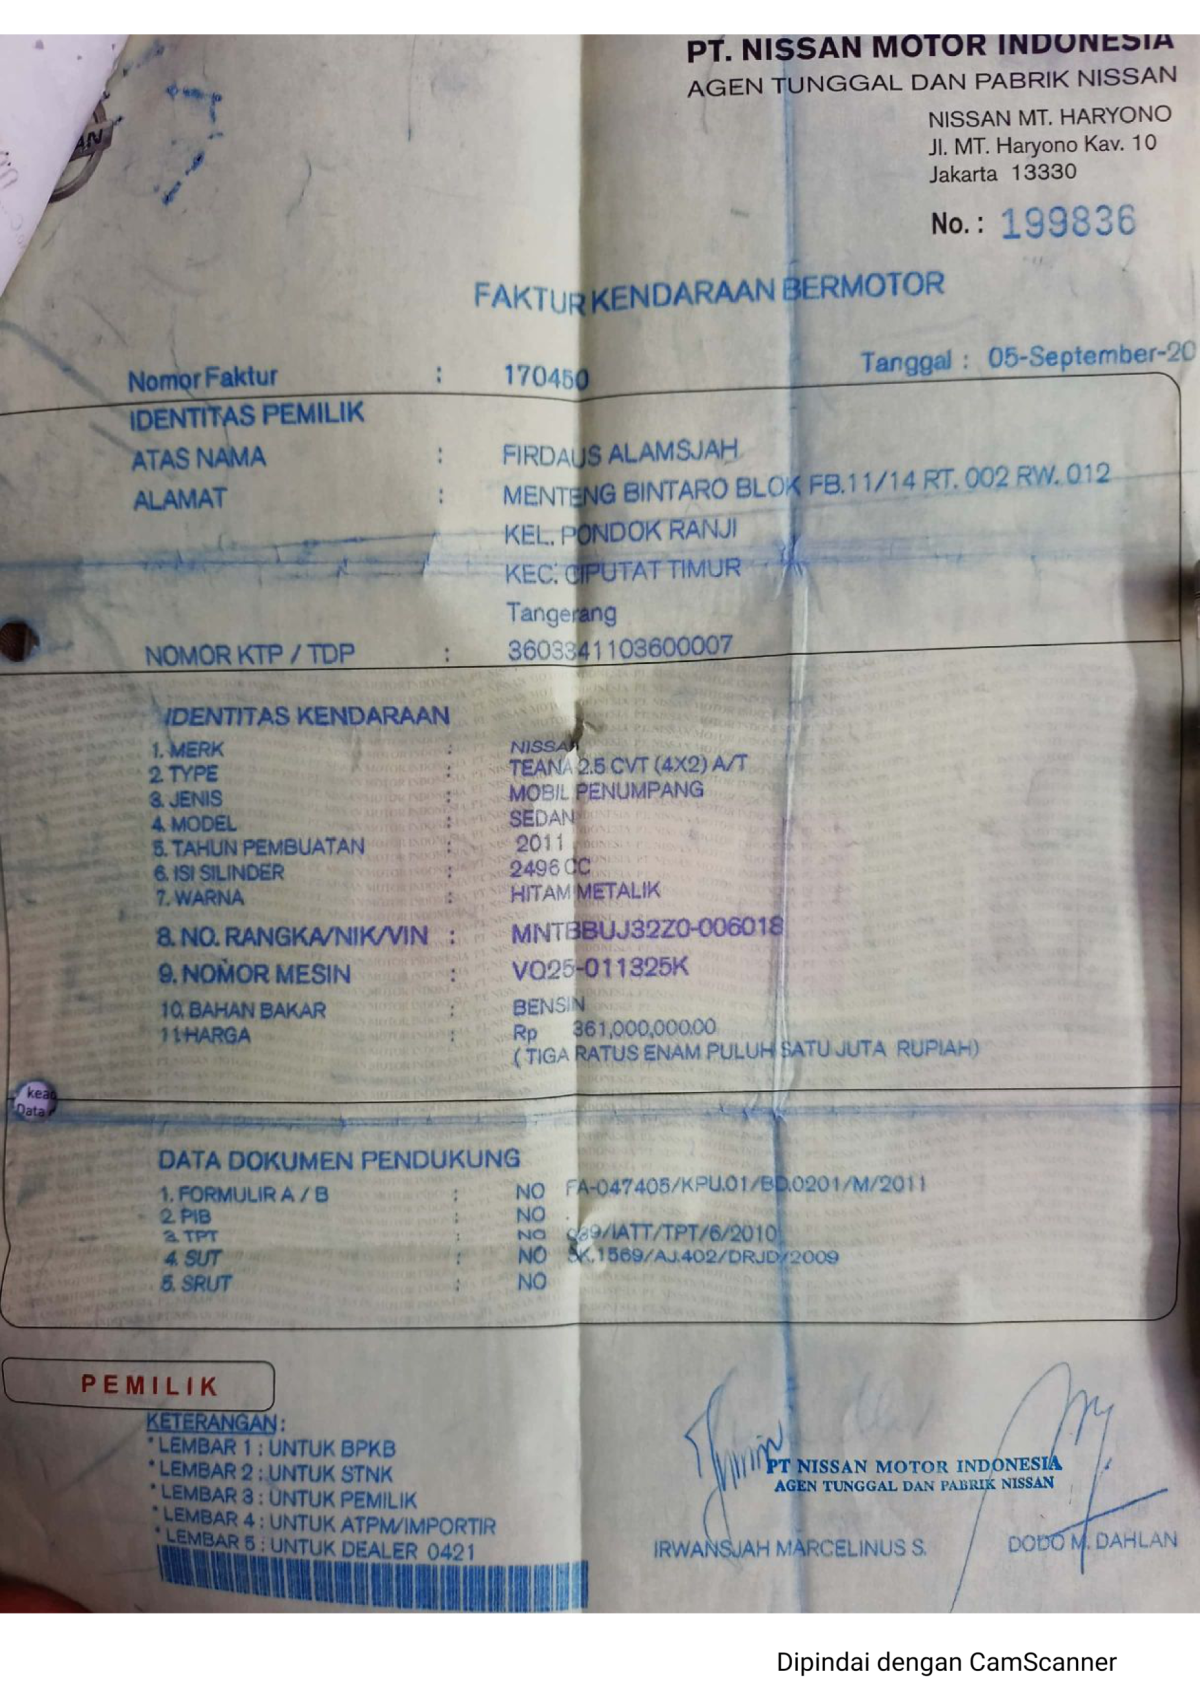 PT. NISSAN MOTOR INDONESIA
AGEN TUNGGAL DAN PABRIK NISSAN
NISSAN MT. HARYONO
Jl. MT. Haryono Kav. 10
Jakarta 13330
No. : 199836
FAKTUR KENDARAAN BERMOTOR
Tanggal : 05-September-20
Nomor Faktur : 170450
IDENTITAS PEMILIK
ATAS NAMA : FIRDAUS ALAMSJAH
ALAMAT : MENTENG BINTARO BLOK FB.11/14 RT. 002 RW. 012
KEL. PONDOK RANJI
KEC. CIPUTAT TIMUR
Tangerang
NOMOR KTP / TDP : 3603341103600007
IDENTITAS KENDARAAN
1. MERK : NISSAN
2. TYPE : TEANA 2.5 CVT (4X2) A/T
3. JENIS : MOBIL PENUMPANG
4. MODEL : SEDAN
5. TAHUN PEMBUATAN : 2011
6. ISI SILINDER : 2496 CC
7. WARNA : HITAM METALIK
8. NO. RANGKA/NIK/VIN : MNTBBUJ32Z0-006018
9. NOMOR MESIN : VQ25-011325K
10. BAHAN BAKAR : BENSIN
11. HARGA : Rp 361,000,000.00
( TIGA RATUS ENAM PULUH SATU JUTA RUPIAH)
kea
Data
DATA DOKUMEN PENDUKUNG
1. FORMULIR A / B : NO FA-047405/KPU.01/BD.0201/M/2011
2. PIB : NO .
3. TPT : NO 039/IATT/TPT/6/2010
4. SUT : NO SK.1569/AJ.402/DRJD/2009
5. SRUT : NO
PEMILIK
KETERANGAN :
* LEMBAR 1 : UNTUK BPKB
* LEMBAR 2 : UNTUK STNK
* LEMBAR 3 : UNTUK PEMILIK
* LEMBAR 4 : UNTUK ATPM/IMPORTIR
* LEMBAR 5 : UNTUK DEALER 0421
PT NISSAN MOTOR INDONESIA
AGEN TUNGGAL DAN PABRIK NISSAN
IRWANSJAH MARCELINUS S. DODO M. DAHLAN
Dipindai dengan CamScanner